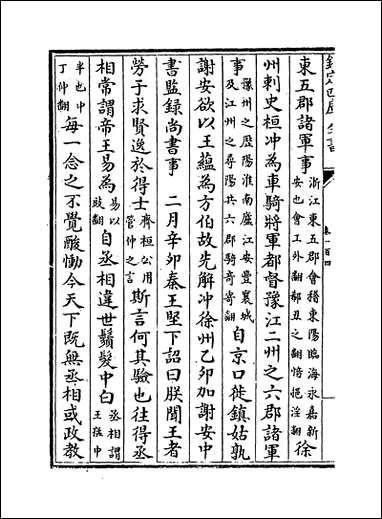 欽定四庫全書
卷一百四
東五郡諸軍事浙江東五郡會稽東陽臨海永嘉新安也會工外翻郗丑之翻愔挹淫翻徐
州刺史桓冲為車騎將軍都督豫江二州之六郡諸軍
事豫州之歷陽淮南廬江安豐襄城及江州之尋陽共六郡騎奇寄翻自京口徙鎮姑孰
謝安欲以王蘊為方伯故先解冲徐州乙卯加謝安中
書監録尚書事　二月辛卯秦王堅下詔曰朕聞王者
勞于求賢逸於得士齊桓公用管仲之言斯言何其驗也往得丞
相常謂帝王易為易以豉翻自丞相違世鬚髮中白丞相謂王猛中
半也中丁仲翻每一念之不覺酸慟今天下既無丞相或政教